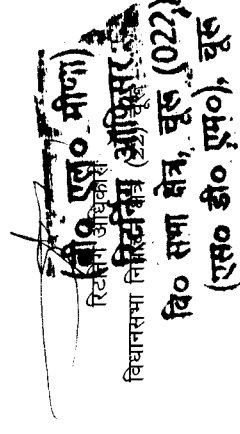 (बी० एल० मीणा)
रिटर्निंग अधिकारी
रिटर्निंग ऑफिसर
विधानसभा निर्वाचन क्षेत्र (22) चूरू
वि० सभा क्षेत्र, चूरू (022)
(एस० डी० एम०), चूरू